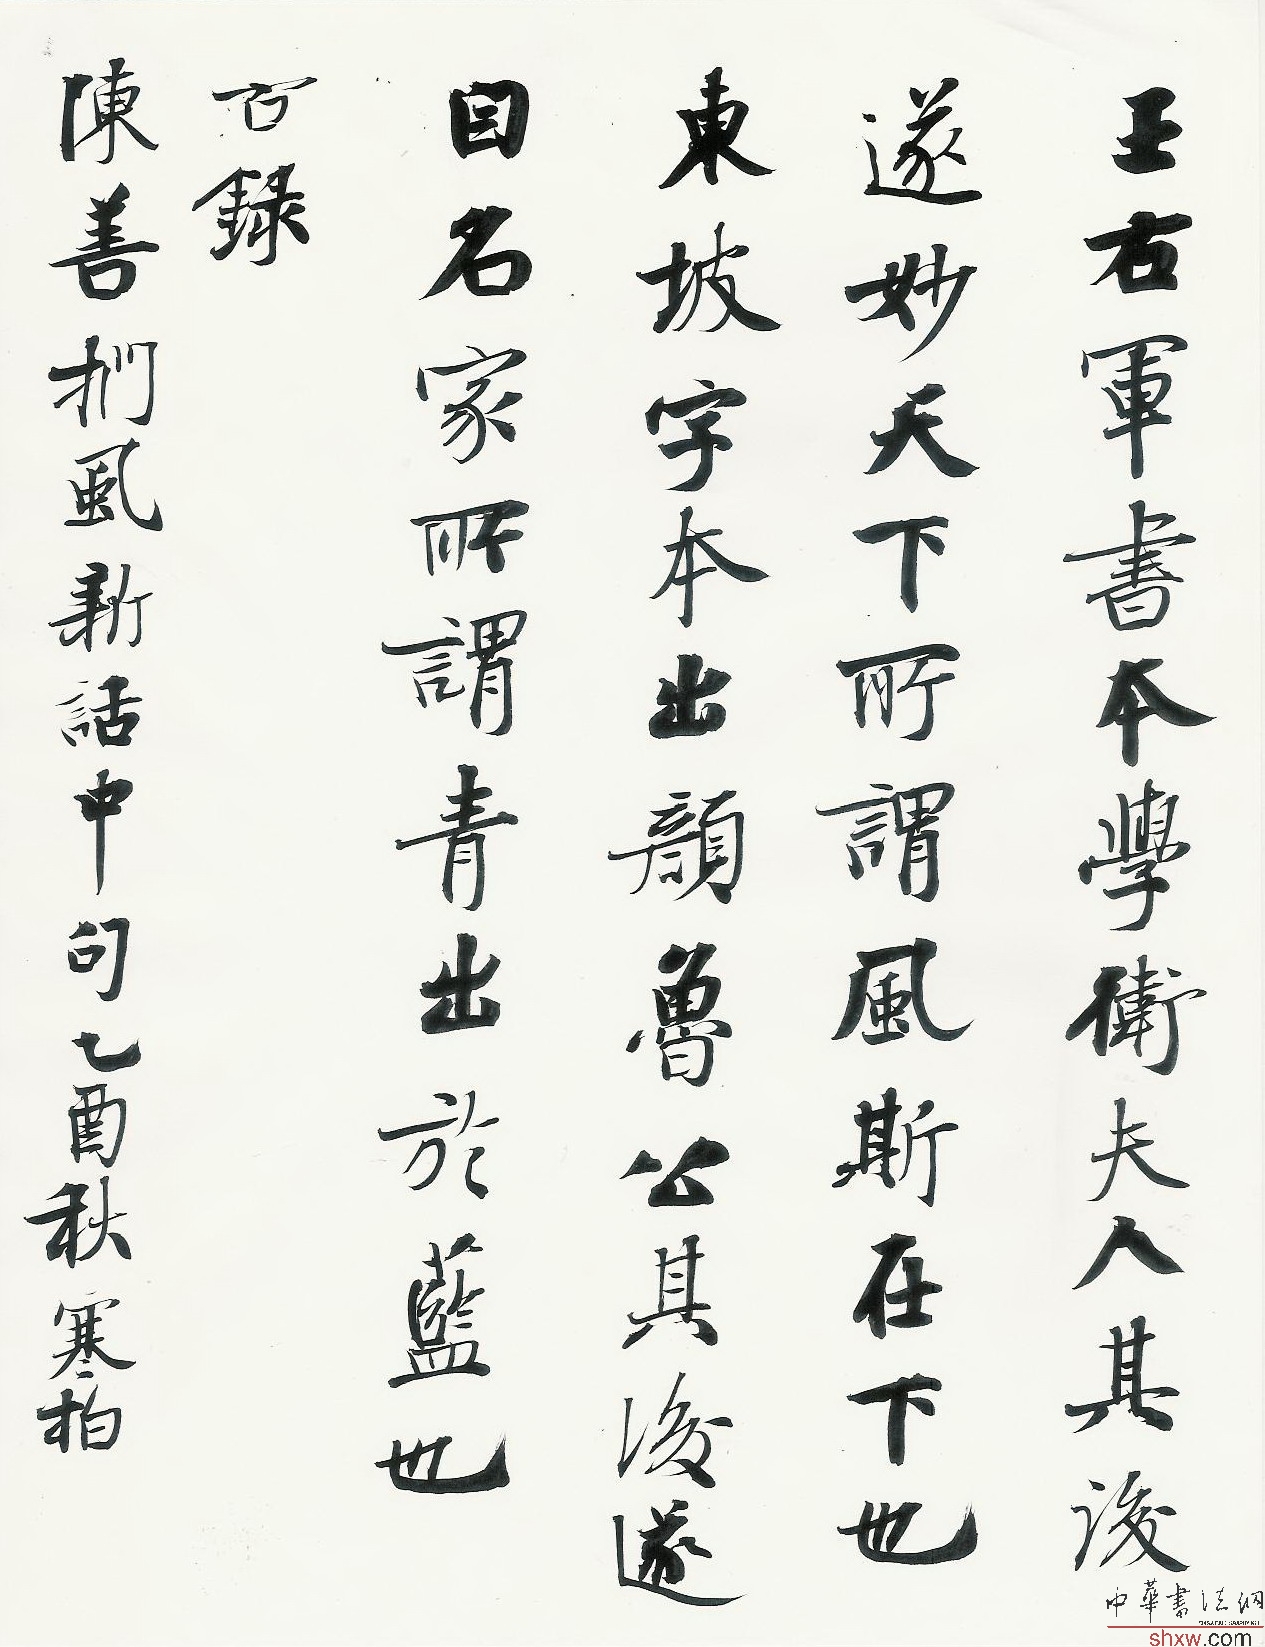 王右軍書本學衛夫人其後
遂妙天下所謂風斯在下也
東坡字本出顏魯公其後遂
自名家所謂青出於藍也
右錄
陳善捫虱新話中句乙酉秋寒柏
中華書法網
shxw.com